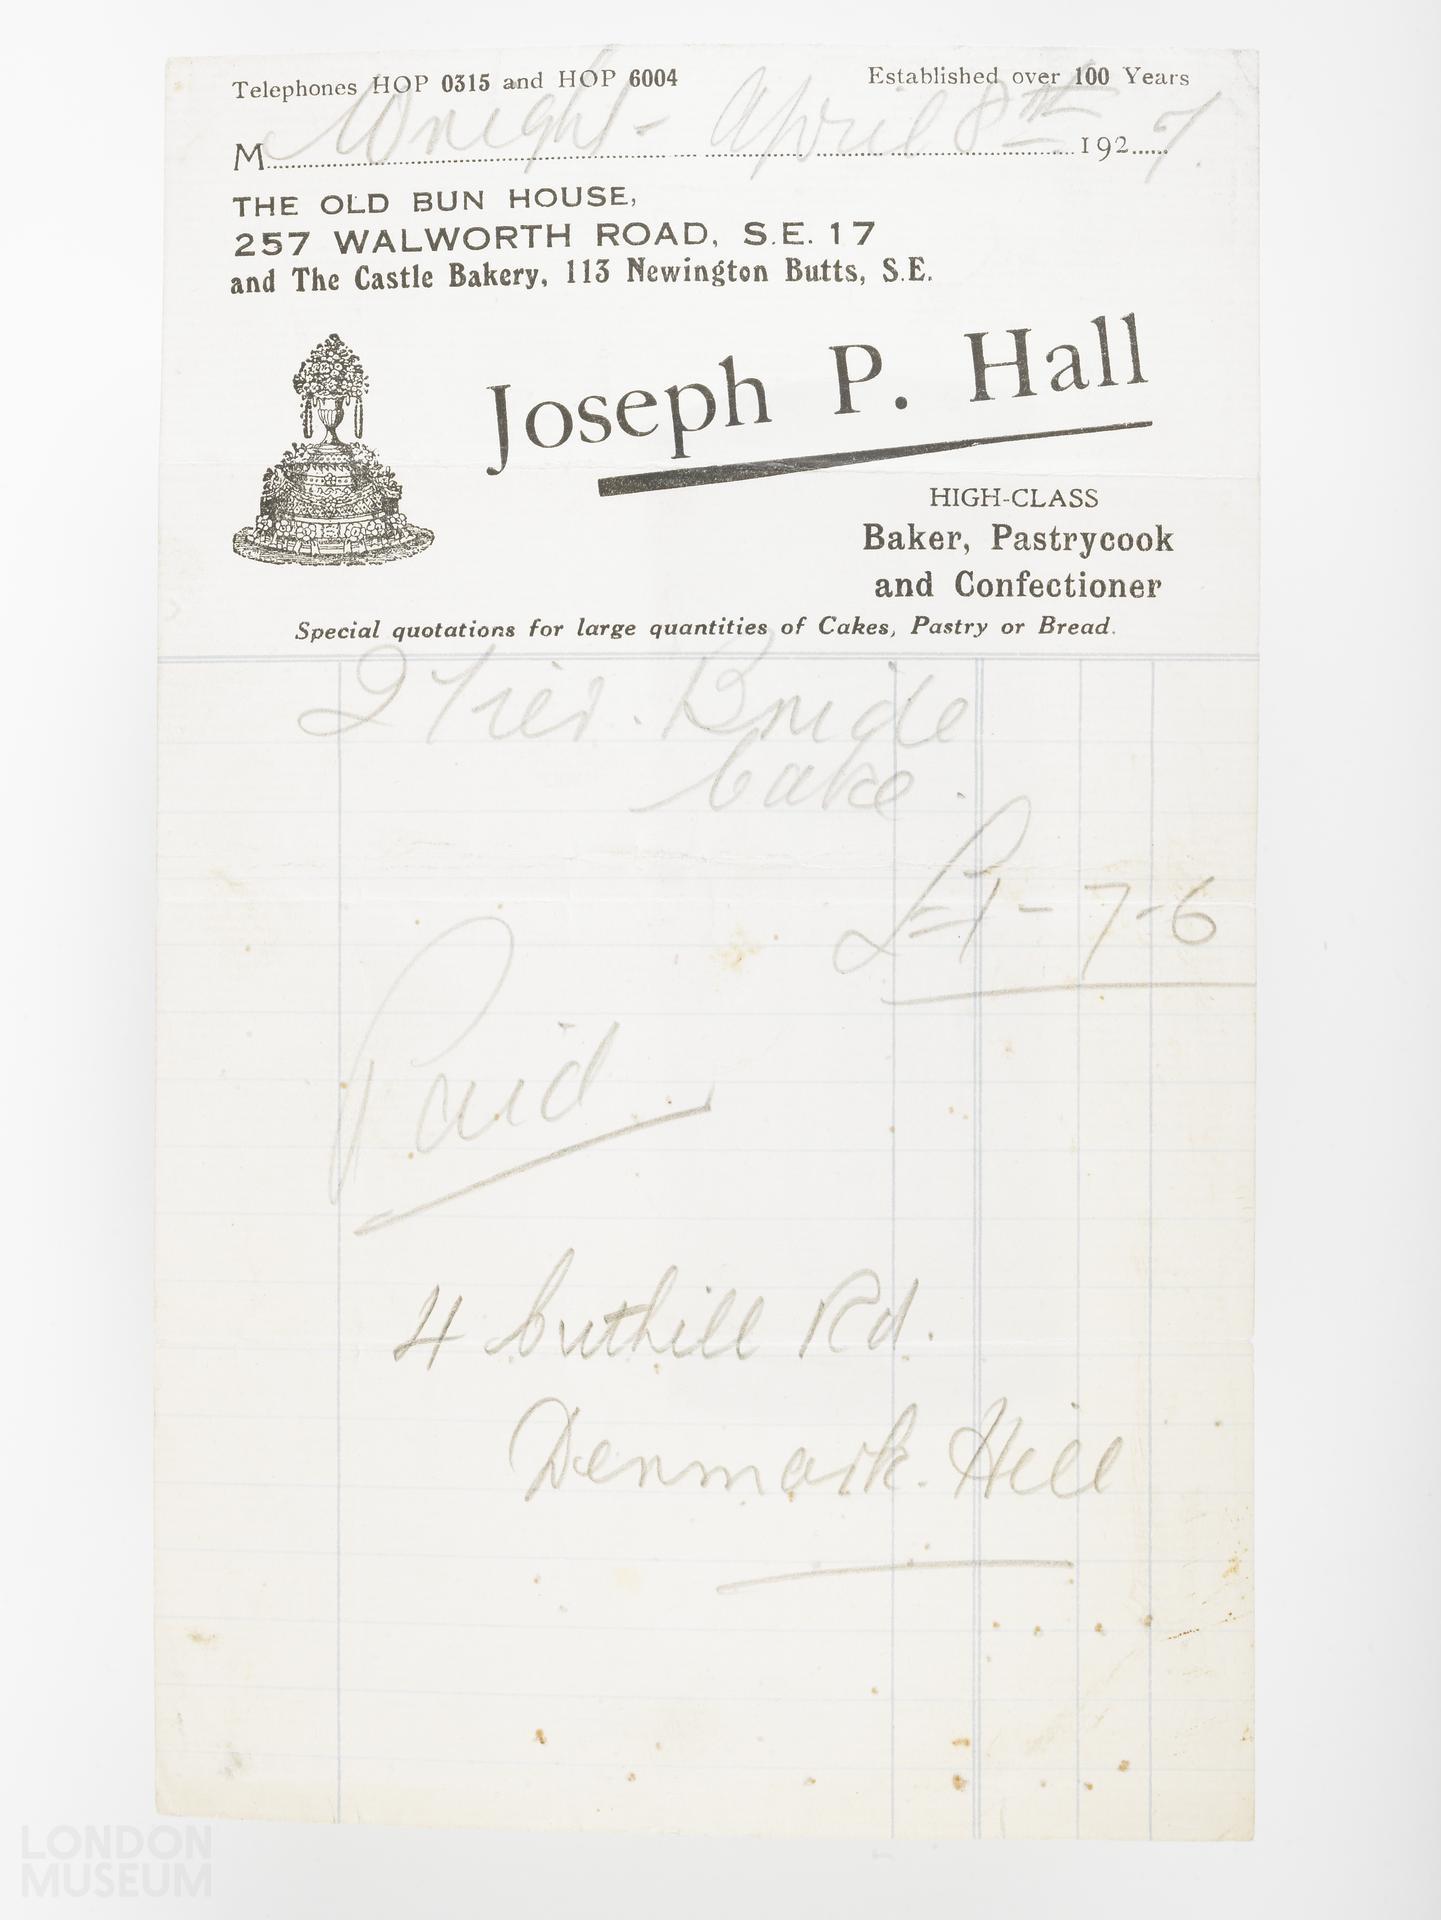 Telephones HOP 0315 and HOP 6004 Established over 100 Years
M Wright - April 8th 1927.
THE OLD BUN HOUSE,
257 WALWORTH ROAD, S.E. 17
and The Castle Bakery, 113 Newington Butts, S.E.
Joseph P. Hall
HIGH-CLASS
Baker, Pastrycook
and Confectioner
Special quotations for large quantities of Cakes, Pastry or Bread.
2 Tier. Bride
Cake.
£1-7-6
Paid
4 Cuthill Rd.
Denmark. Hill
LONDON
MUSEUM